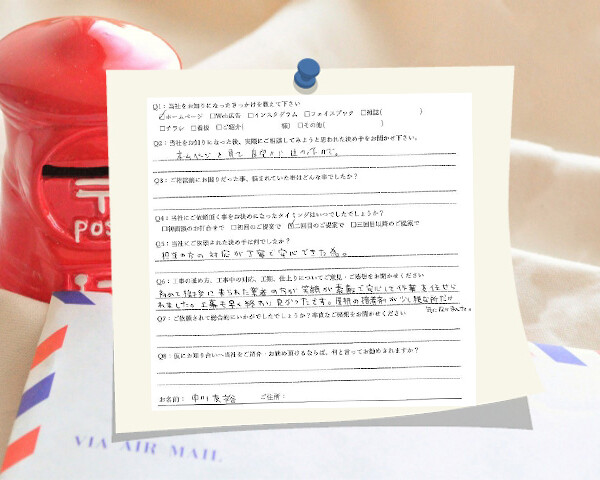 POS
Q1：当社をお知りになったきっかけを教えて下さい
☑ホームページ □Web広告 □インスタグラム □フェイスブック □雑誌( )
□チラシ □看板 □ご紹介( 様) □その他( )
Q2：当社をお知りになった後、実際にご相談してみようと思われた決め手をお聞かせ下さい。
ホームページを見て
Q3：ご相談前にお困りだった事、悩まれていた事はどんな事でしたか？
Q4：当社にご依頼頂く事をお決めになったタイミングはいつでしたでしょうか？
□初面談のお打合せまで □初回のご提案で ☑二回目のご提案で □三回目以降のご提案で
Q5：当社にご依頼された決め手は何でしたか？
担当の方の対応が丁寧で安心できた為。
Q6：工事の進め方、工事中の対応、工期、仕上りについてご意見・ご感想をお聞かせください
初めて挨拶に来られた業者の方が笑顔が素敵で安心して作業を任せら
れました。工事も早く終わり良かったです。屋根の接着剤が少し残念所だけ
気になりました。
Q7：ご依頼されて総合的にいかがでしたでしょうか？率直なご感想をお聞かせください
Q8：仮にお知り合いへ当社をご紹介・お勧め頂けるならば、何と言ってお勧めされますか？
お名前： 中川 ご住所：
VIA AIR MAIL